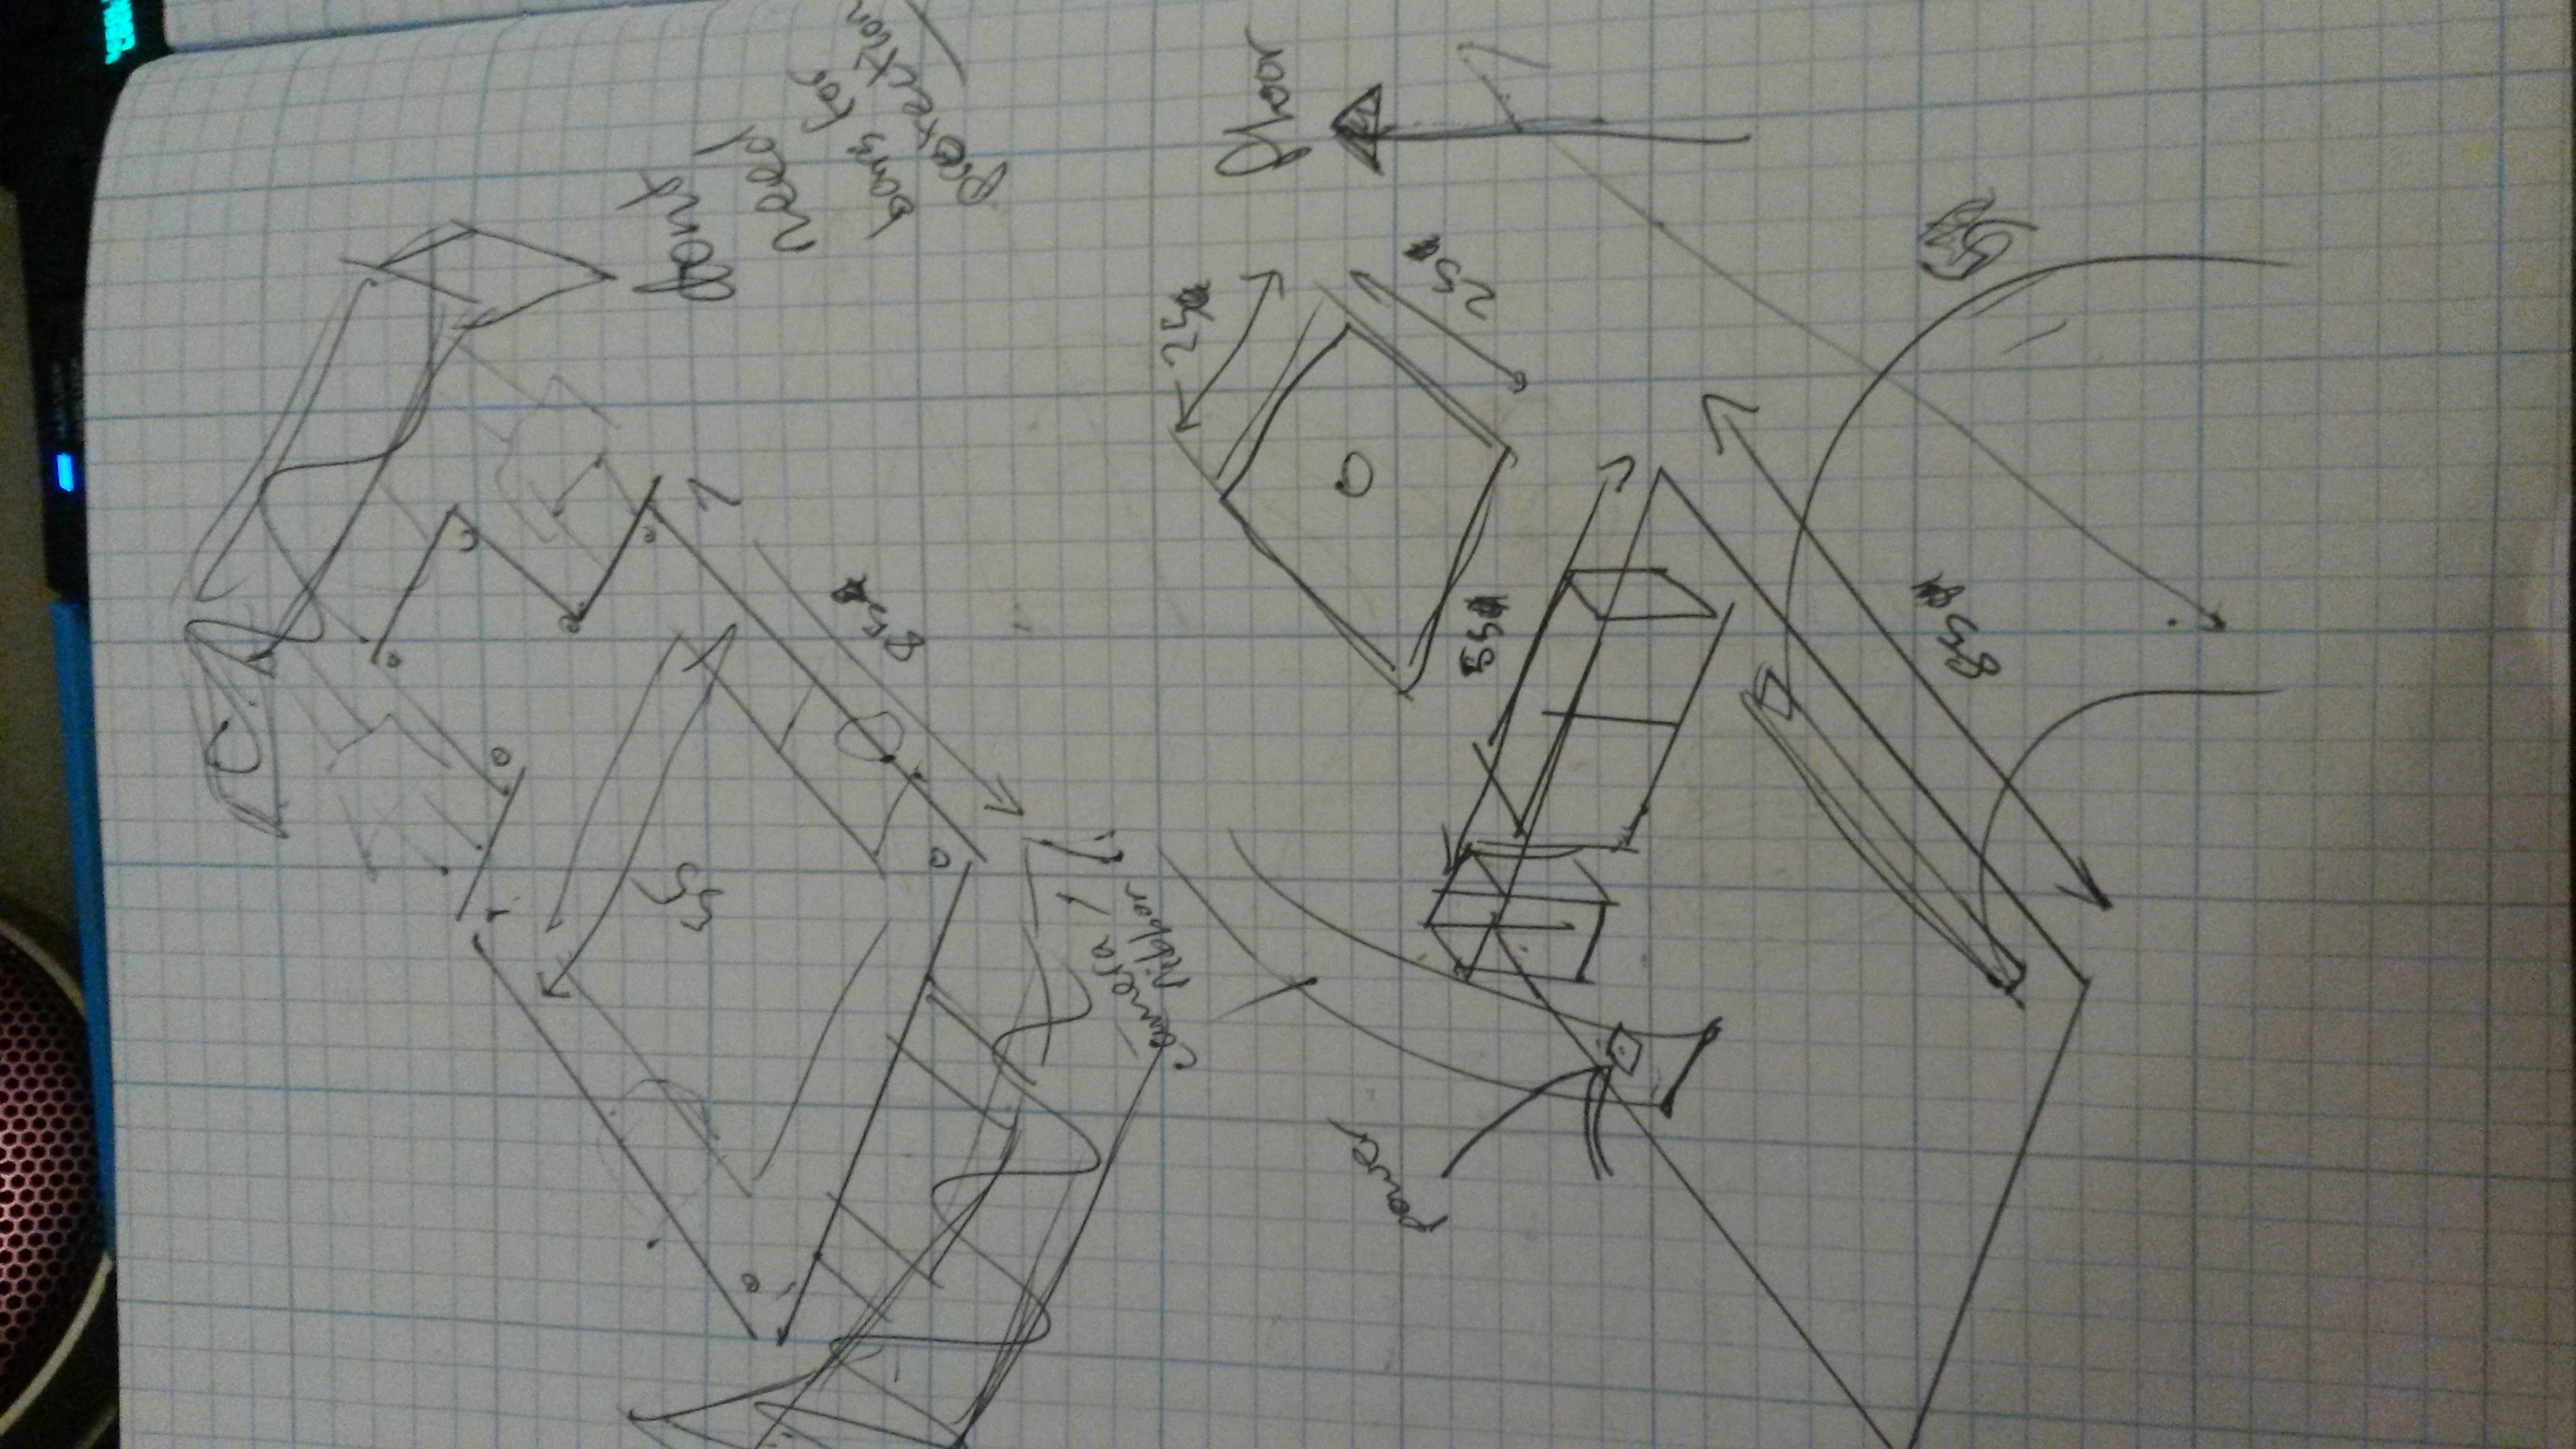 55
85
dont
need
bars for
protection
camera
ribbon
25
floor
power
55
25
85